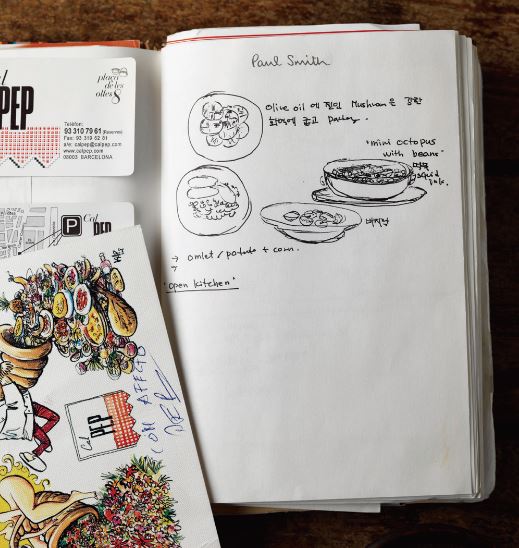 Cal
PEP
plaça
de les
olles 8
Telèfon:
93 310 79 61 (Reserves)
Fax: 93 319 62 81
a/e: calpep@calpep.com
www.calpep.com
08003 BARCELONA
P
Cal
PEP
Cal
PEP
COM AFFECTE
PEP
Paul Smith
Olive oil 에 절인 Mushroom은 강한
화력에 굽고 parsley.
'mini octopus
with beans'
먹물
squid
ink.
바지락
→ omlet / potato + corn.
→
'open kitchen'